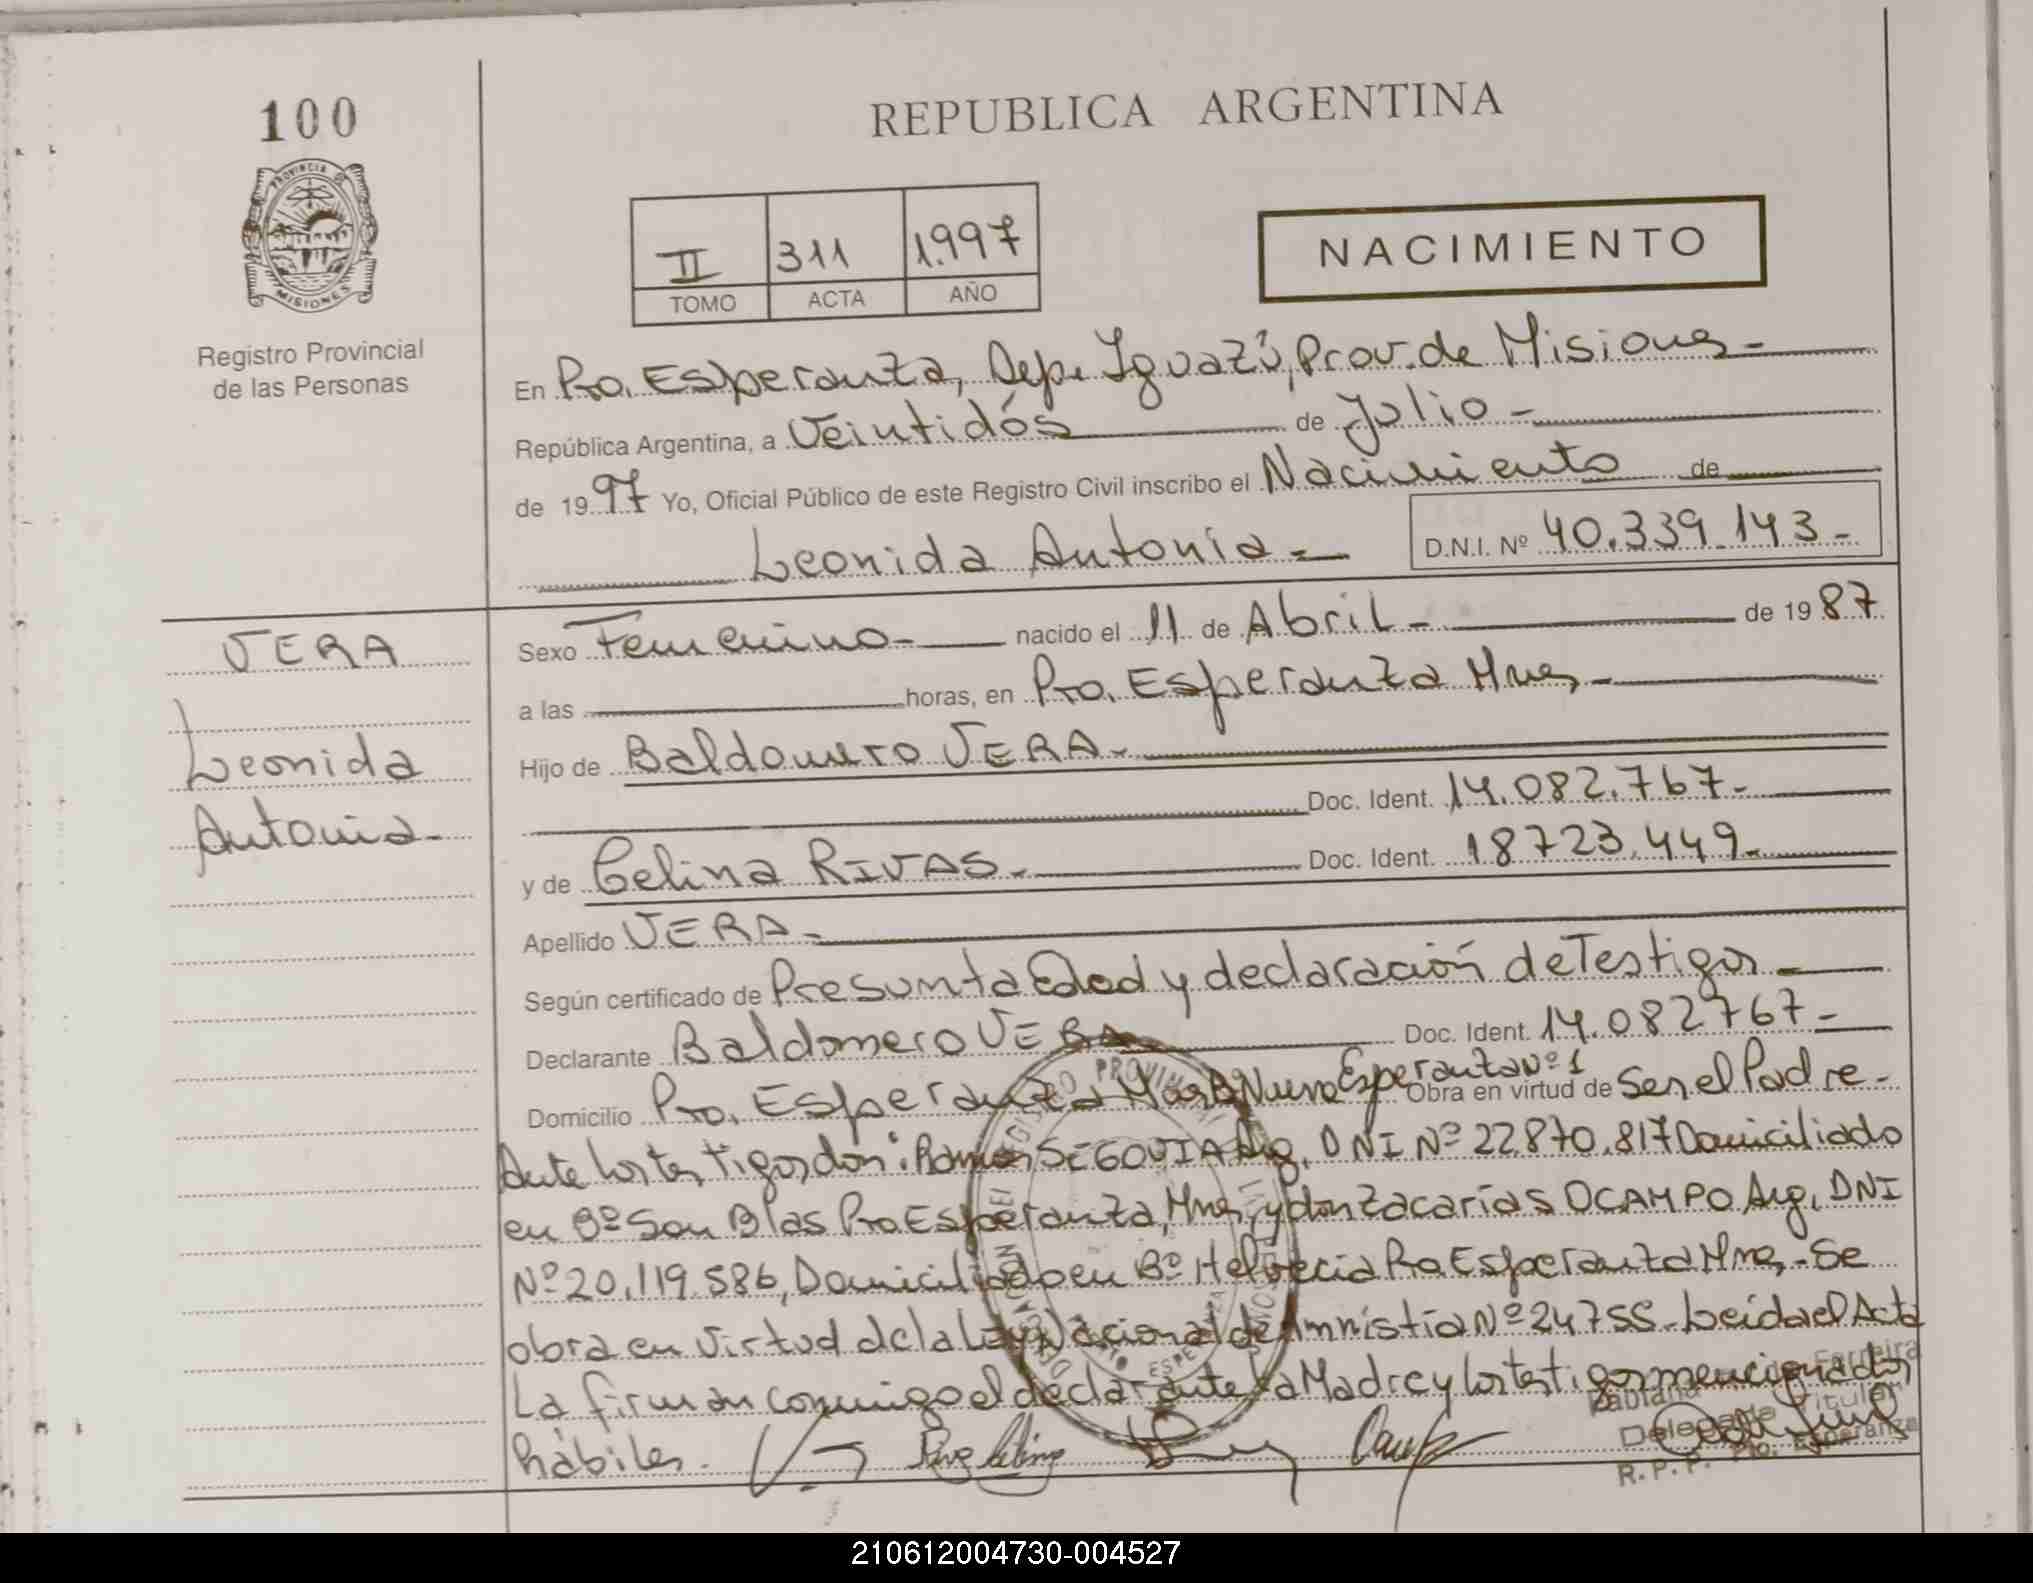 100
REPUBLICA ARGENTINA
PROVINCIA DE
MISIONES
Registro Provincial
de las Personas
II 311 1.997
TOMO ACTA AÑO
NACIMIENTO
En Pto. Esperanza, Dep. Iguazú, Prov. de Misiones -
República Argentina, a Veintidós de Julio -
de 1997 Yo, Oficial Público de este Registro Civil inscribo el Nacimiento de
Leonida Antonia - D.N.I. Nº 40.339.143 -
VERA
Leonida
Antonia -
Sexo Femenino - nacido el 11 de Abril - de 1987
a las horas, en Pto. Esperanza Mnes -
Hijo de Baldomero VERA -
Doc. Ident. 14.082.767 -
y de Celina RIVAS - Doc. Ident. 18723.449 -
Apellido VERA -
Según certificado de Presunta Edad y declaración de Testigos -
Declarante Baldomero VERA Doc. Ident. 14.082767 -
Domicilio Pto. Esperanza Nueva Esperanza Nº 1 Obra en virtud de Ser el Padre -
Ante los testigos don: Ramon SEGOVIA Arg. DNI Nº 22.870.817 Domiciliado
en Bº San Blas Pto Esperanza, Mnes, y don Zacarías OCAMPO Arg. DNI
Nº 20.119.586, Domiciliado en Bº Helvecia Pto Esperanza Mnes, - Se
obra en virtud de la Ley Nacional de Amnistía Nº 24755 - Leída el Acta
La firman conmigo el declarante la Madre y los testigos mencionados
hábiles.
Ferreira
Delegada Titular
R.P.P. Pto. Esperanza
210612004730-004527